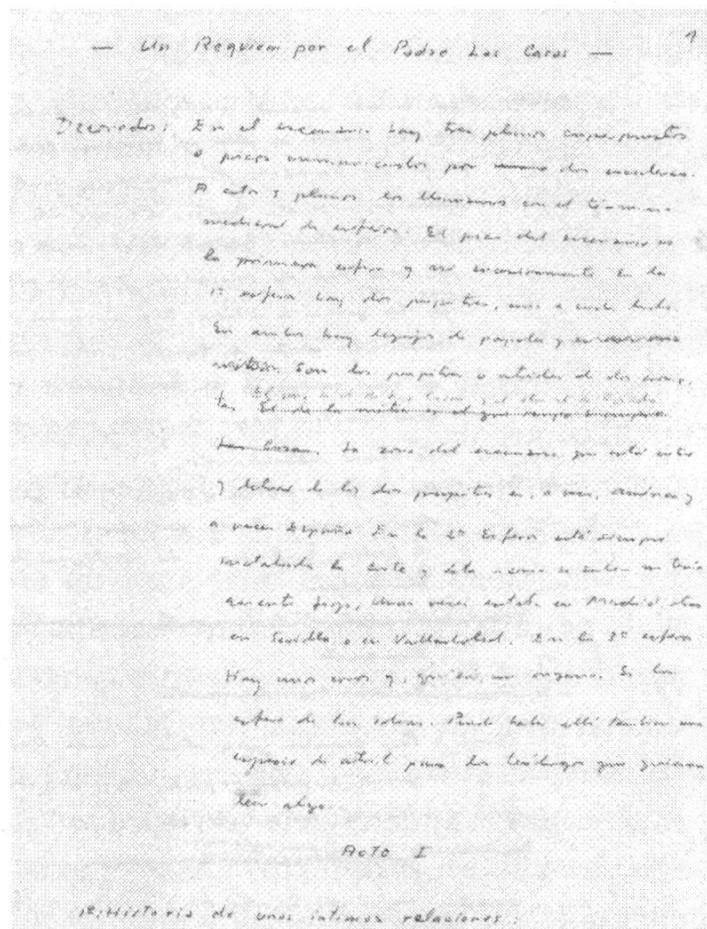 1
— Un Requiem por el Padre Las Casas —
Decorados: En el escenario hay tres planos superpuestos
o pisos comunicados por dos escaleras.
A estos 3 planos los llamamos con el término
medieval de esferas. El piso del escenario es
la primera esfera y en la
1ª esfera hay dos pupitres, uno a cada lado.
En ambos hay de papeles y
Son los pupitres o atriles de dos
La zona del escenario que está entre
y detrás de los dos pupitres es, a veces, América y
a veces España. En la 2ª Esfera está siempre
instalada la corte y ésta como se sabe no tenía
asiento fijo, unas veces estaba en Madrid otras
en Sevilla o en Valladolid. En la 3ª esfera
Hay unos coros y, quizás, un órgano. Es la
esfera de las ideas. Puede haber allí también una
especie de atril para los teólogos que quieran
leer algo.
Acto I
1º: Historia de unas íntimas relaciones: